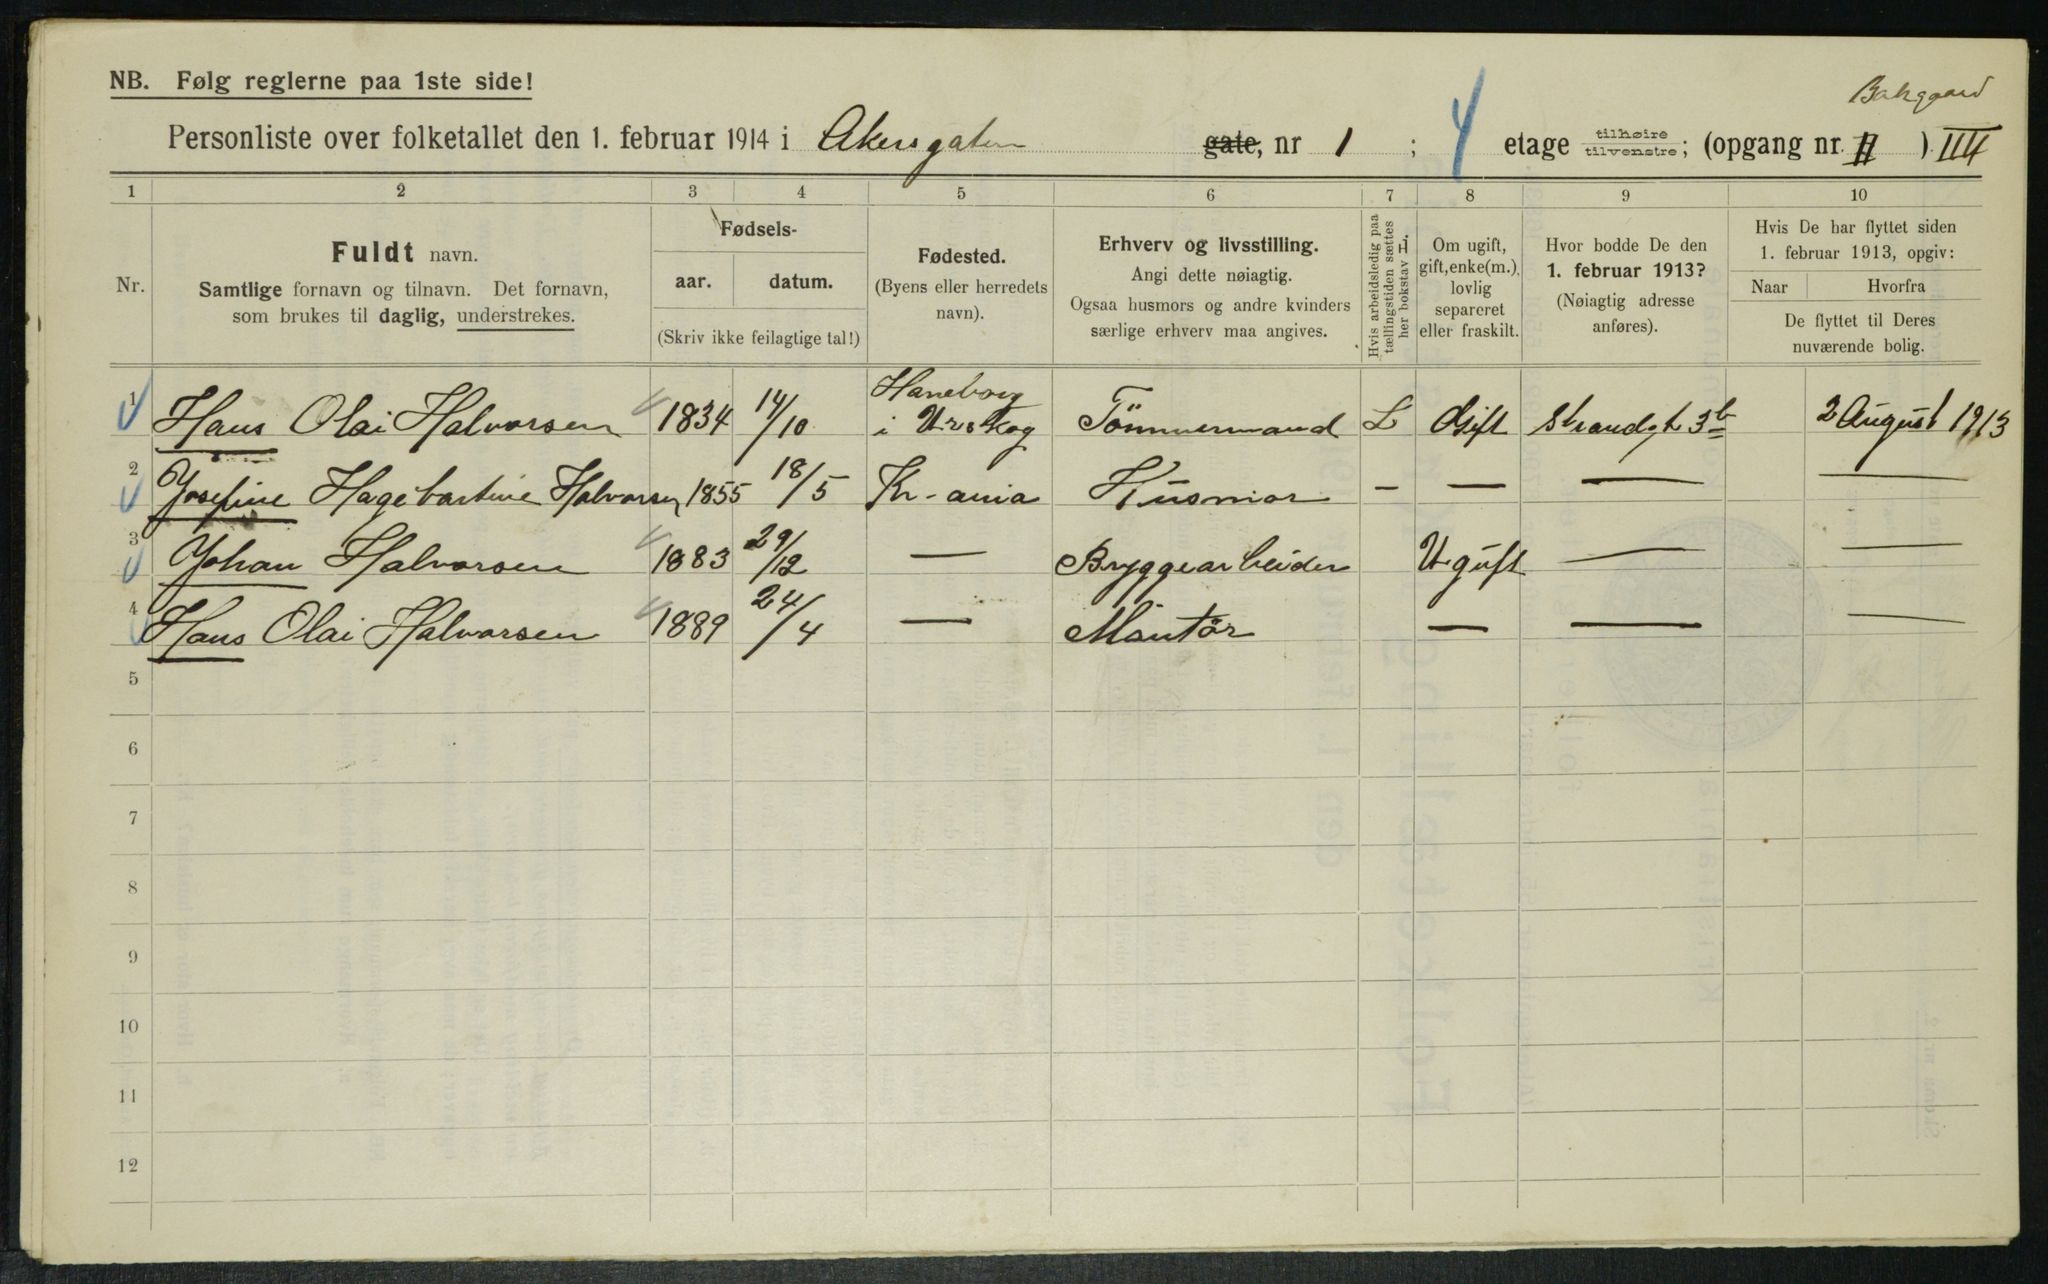 NB. Følg reglerne paa 1ste side!
Bakgaard
Personliste over folketallet den 1. februar 1914 i Akersgaten gate, nr 1 ; 4 etage tilhøire tilvenstre; (opgang nr. II ) IIII
1 2 3 4 5 6 7 8 9 10
Nr.
Fuldt navn.
Samtlige fornavn og tilnavn. Det fornavn,
som brukes til daglig, understrekes.
Fødsels-
aar. datum.
(Skriv ikke feilagtige tal!)
Fødested.
(Byens eller herredets
navn).
Erhverv og livsstilling.
Angi dette nøiagtig.
Ogsaa husmors og andre kvinders
særlige erhverv maa angives.
Hvis arbeidsledig paa
tællingstiden sættes
her bokstav L.
Om ugift,
gift, enke(m.),
lovlig
separeret
eller fraskilt.
Hvor bodde De den
1. februar 1913?
(Nøiagtig adresse
anføres).
Hvis De har flyttet siden
1. februar 1913, opgiv:
Naar Hvorfra
De flyttet til Deres
nuværende bolig.
1 Hans Olai Halvorsen 1834 14/10 Haneborg i Urskog Tömmermand L Gift Strandgt 3b 2 August 1913
2 Josefine Hagebartine Halvorsen 1855 18/5 Kr-ania Husmor — — — —
3 Johan Halvorsen 1883 29/12 — Bryggearbeider Ugift — —
4 Hans Olai Halvorsen 1889 24/4 — Montör — — —
5
6
7
8
9
10
11
12